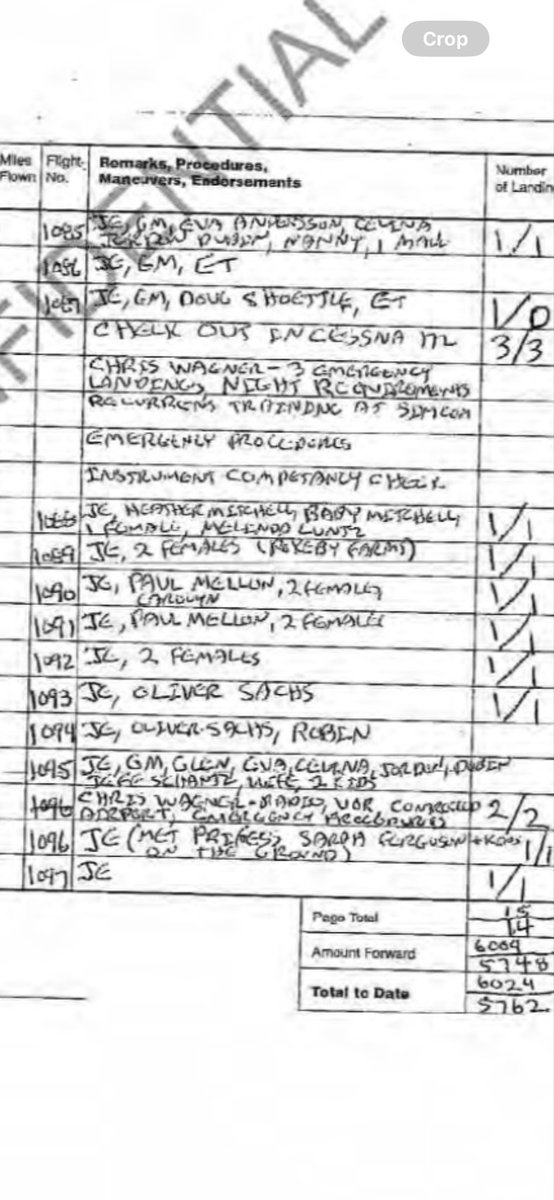 Crop
CONFIDENTIAL
Miles Flown
Flight No.
Remarks, Procedures, Maneuvers, Endorsements
Number of Landin
1085 JE, GM, EVA ANDERSSON, CELINA
DUBIN, NANNY, 1 MALE 1/1
1086 JE, GM, ET
1087 JE, GM, DOUG SHOETTLE, ET 1/0
CHECK OUT IN CESSNA 3/3
CHRIS WAGNER - 3 EMERGENCY
LANDINGS, NIGHT REQUIREMENTS
RECURRENT TRAINING AT SIMCOM
EMERGENCY PROCEDURES
INSTRUMENT COMPETANCY CHECK
1088 JE, HEATHER MITCHELL, BABY MITCHELL
1 FEMALE, MELINDA LUNTZ 1/1
1089 JE, 2 FEMALES (ROKEBY FARMS) 1/1
1090 JE, PAUL MELLON, 2 FEMALES
CAROLYN 1/1
1091 JE, PAUL MELLON, 2 FEMALES 1/1
1092 JE, 2 FEMALES 1/1
1093 JE, OLIVER SACHS 1/1
1094 JE, OLIVER SACHS, ROBIN
1095 JE, GM, GLEN, EVA, CELINA, JORDAN, DUBIN
JEFF SCHANTZ, WIFE, 2 KIDS
1096 CHRIS WAGNER - RADIO, VOR, CONTROLLED
AIRPORT, EMERGENCY PROCEDURES 2/2
1096 JE (MET PRINCESS SARAH FERGUSON + KIDS
ON THE GROUND) 1/1
1097 JE 1/1
Page Total 15
14
Amount Forward 6009
5748
Total to Date 6024
5762